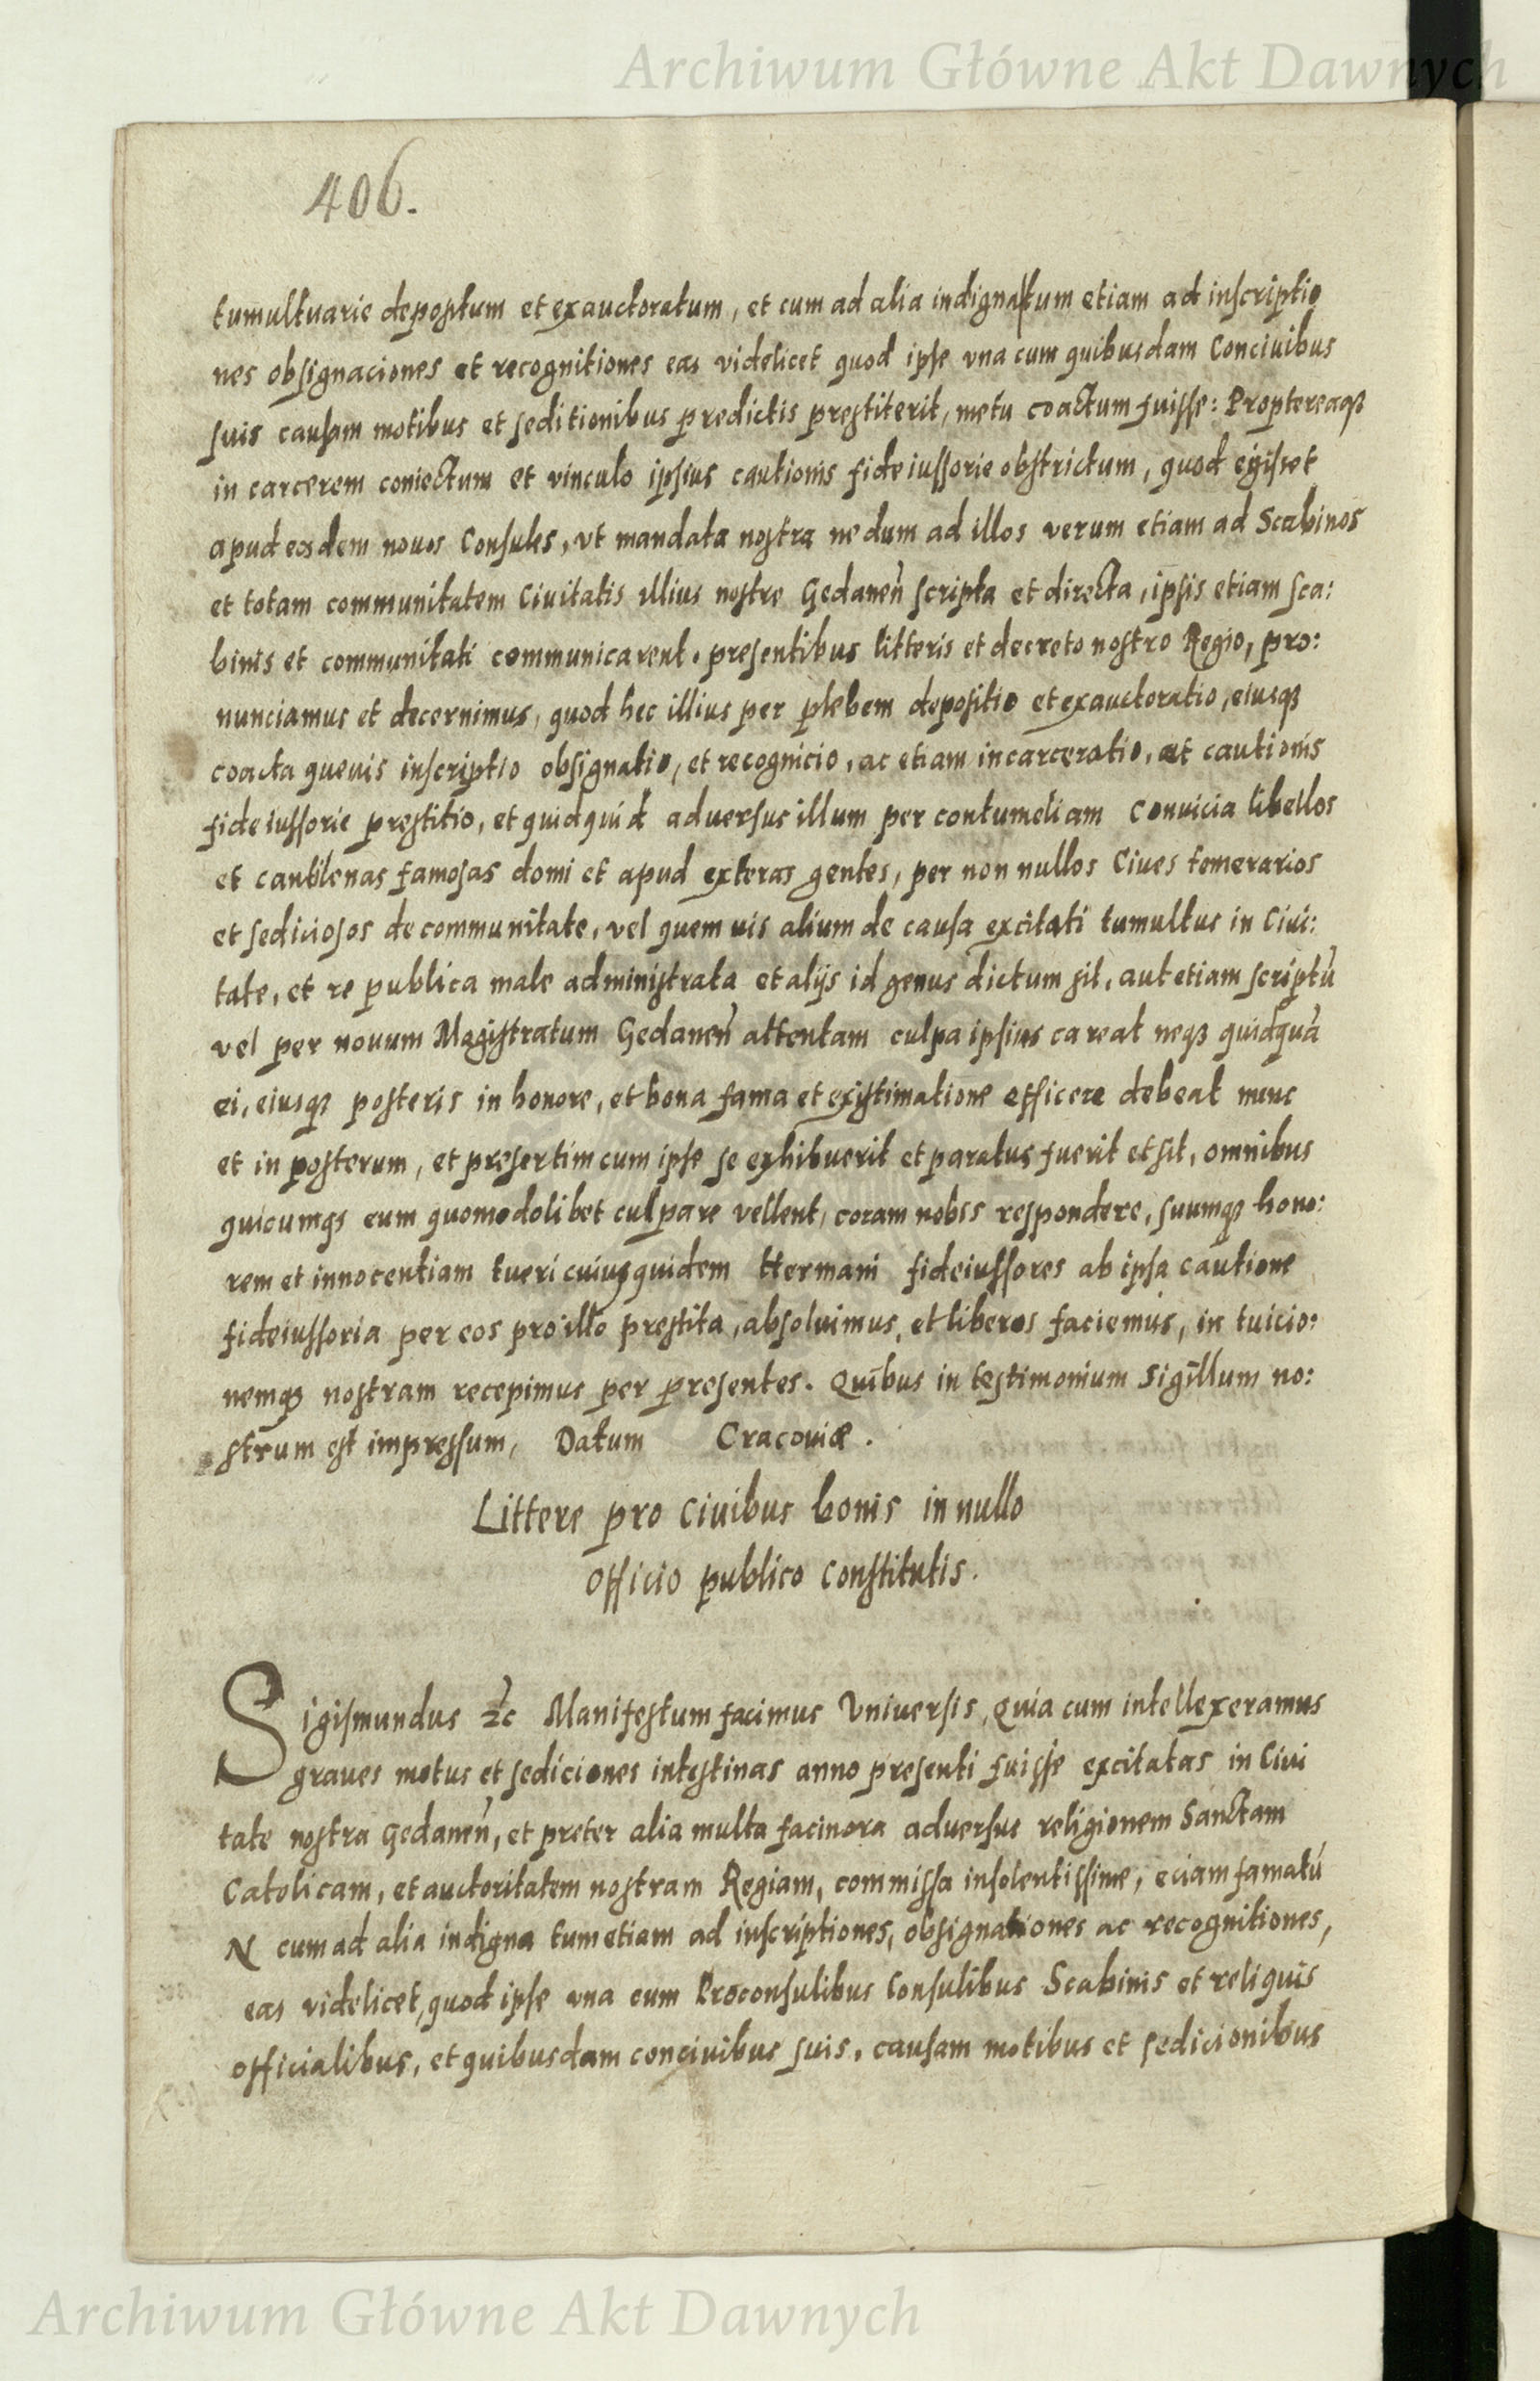 Archiwum Główne Akt Dawnych
406.
tumultuarie depositum et exauctoratum, et cum ad alia indigna tum etiam ad inscriptio
nes obsignaciones et recognitiones eas videlicet quod ipse vna cum quibusdam Conciuibus
suis causam motibus et seditionibus predictis prestiterit, metu coactum fuisse: Propterea㊒
in carcerem coniectum et vinculo ipsius cautionis fideiussorie obstrictum, quod egisset
apud eosdem nouos Consules, vt mandata nostra nedum ad illos verum etiam ad Scabinos
et totam communitatem Ciuitatis illius nostre Gedanen̄ scripta et directa, ipsis etiam sca:
binis et communitati communicarent. presentibus litteris et decreto nostro Regio, pro:
nunciamus et decernimus, quod hec illius per plebem depositio et exauctoratio, eiusq3
coacta queuis inscriptio obsignatio, et recognicio, ac etiam incarceratio, et cautionis
fideiussorie prestitio, et quidquid adversus illum per contumeliam Convicia libellos
et cantilenas famosas domi et apud exteras gentes, per non nullos Ciues temerarios
et sediciosos de communitate, vel quem uis alium de causa excitati tumultus in Ciui:
tate, et re publica male administrata et alijs id genus dictum sit, aut etiam scriptū
vel per nouum Magistratum Gedanen̄ attentam culpa ipsius careat neq3 quidquā
ei, eiusq3 posteris in honore, et bona fama et existimatione officere debeat nunc
et in posterum, et presertim cum ipse se exhibuerit et paratus fuerit et sit, omnibus
quicumq3 eum quomodolibet culpare vellent, coram nobis respondere, suumq3 hono:
rem et innocentiam tueri cuiusquidem Hermani fideiussores ab ipsa cautione
fideiussoria per eos pro illo prestita, absoluimus, et liberos faciemus, in tuicio:
nemq3 nostram recepimus per presentes. Quibus in testimonium Sigillum no:
strum est impressum, Datum Cracouiæ.
Littere pro Ciuibus bonis in nullo
officio publico Constitutis.
Sigismundus ⁊c̄ Manifestum facimus Vniuersis, Quia cum intellexeramus
graues motus et sediciones intestinas anno presenti fuisse excitatas in Ciui
tate nostra Gedanen̄, et preter alia multa facinora adversus religionem Sanctam
Catolicam, et auctoritatem nostram Regiam, commissa insolentissime, eciam famatū
N cum ad alia indigna tum etiam ad inscriptiones, obsignationes ac recognitiones,
eas videlicet, quod ipse vna cum Proconsulibus Consulibus Scabinis et reliquis
officialibus, et quibusdam conciuibus suis, causam motibus et sedicionibus
Archiwum Główne Akt Dawnych